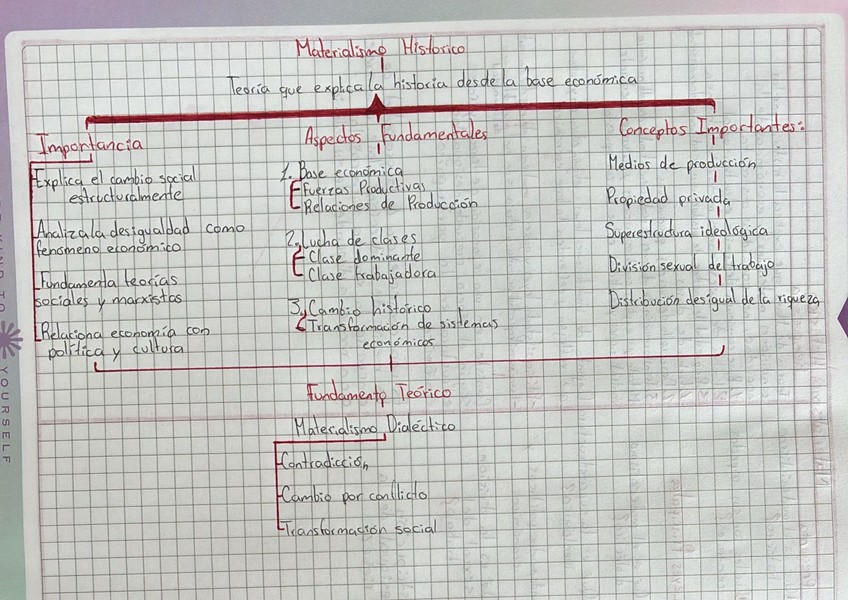 Materialismo Historico
Teoría que explica la historia desde la base económica
Importancia
Explica el cambio social
estructuralmente
Analiza la desigualdad como
fenomeno económico
Fundamenta teorías
sociales y marxistas
Relaciona economía con
política y cultura
Aspectos Fundamentales
1. Base económica
Fuerzas Productivas
Relaciones de Producción
2. Lucha de clases
Clase dominante
Clase trabajadora
3. Cambio histórico
Transformación de sistemas
económicos
Conceptos Importantes:
Medios de producción
Propiedad privada
Superestructura ideológica
División sexual del trabajo
Distribución desigual de la riqueza
Fundamento Teórico
Materialismo Dialéctico
Contradicción
Cambio por conflicto
Transformación social
TO
YOURSELF